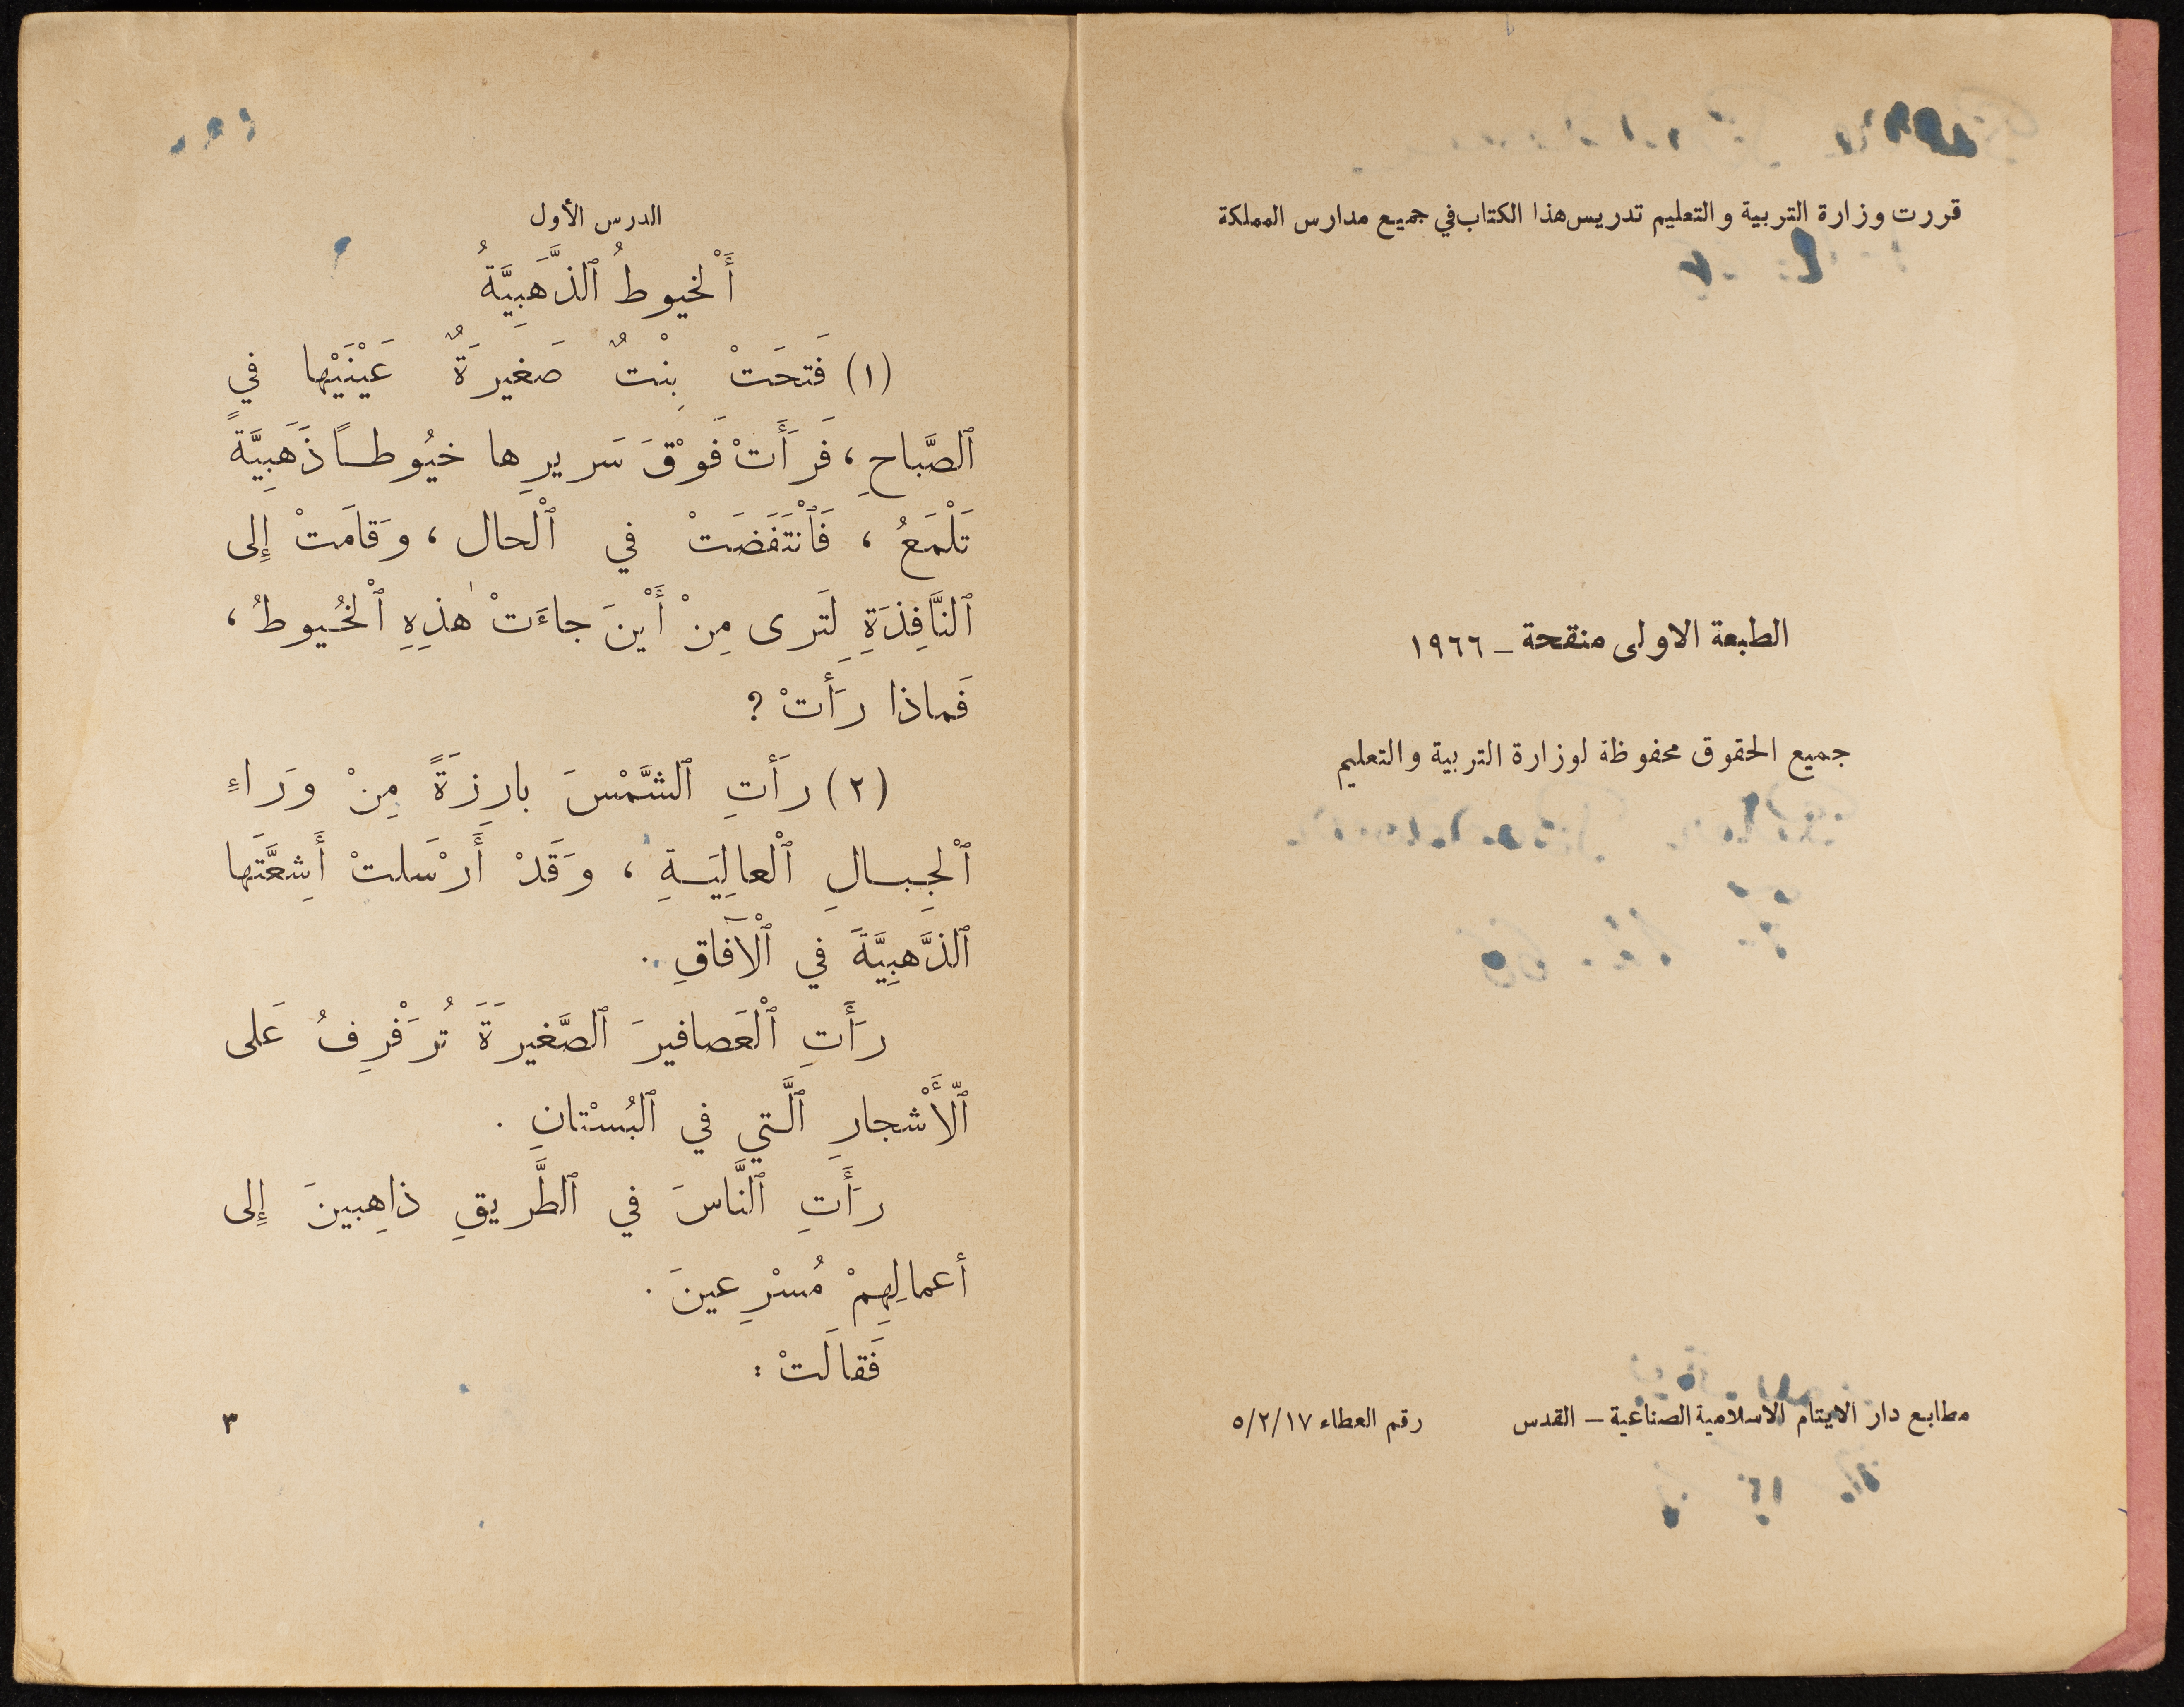 قررت وزارة التربية والتعليم تدريس هذا الكتاب في جميع مدارس المملكة
الطبعة الاولى منقحة – ١٩٦٦
جميع الحقوق محفوظة لوزارة التربية والتعليم
مطابع دار الايتام الاسلامية الصناعية – القدس رقم العطاء ٥/٢/١٧
الدرس الأول
أَلْخيوطُ ٱلذَّهَبِيَّةُ
(١) فَتَحَتْ بِنْتٌ صَغيرَةٌ عَيْنَيْها في
ٱلصَّباحِ، فَرَأَتْ فَوْقَ سَريرِها خيُوطاً ذَهَبِيَّةً
تَلْمَعُ، فَٱنْتَفَضَتْ في ٱلْحال، وَقامَتْ إِلى
ٱلنَّافِذَةِ لِتَرى مِنْ أَيْنَ جاءَتْ هٰذِهِ ٱلْخُيوطُ،
فَماذا رَأَتْ ?
(٢) رَأَتِ ٱلشَّمْسَ بارِزَةً مِنْ وَراءِ
ٱلْجِبالِ ٱلْعالِيَةِ، وَقَدْ أَرْسَلتْ أَشِعَّتَها
ٱلذَّهبِيَّةَ في ٱلْآفاقِ.
رَأَتِ ٱلْعَصافيرَ ٱلصَّغيرَةَ تُرَفْرِفُ عَلى
ٱلْأَشْجارِ ٱلَّتي في ٱلبُسْتانِ.
رَأَتِ ٱلنَّاسَ في ٱلطَّريقِ ذاهِبينَ إِلى
أعمالِهِمْ مُسْرِعينَ.
فَقالَتْ :
٣